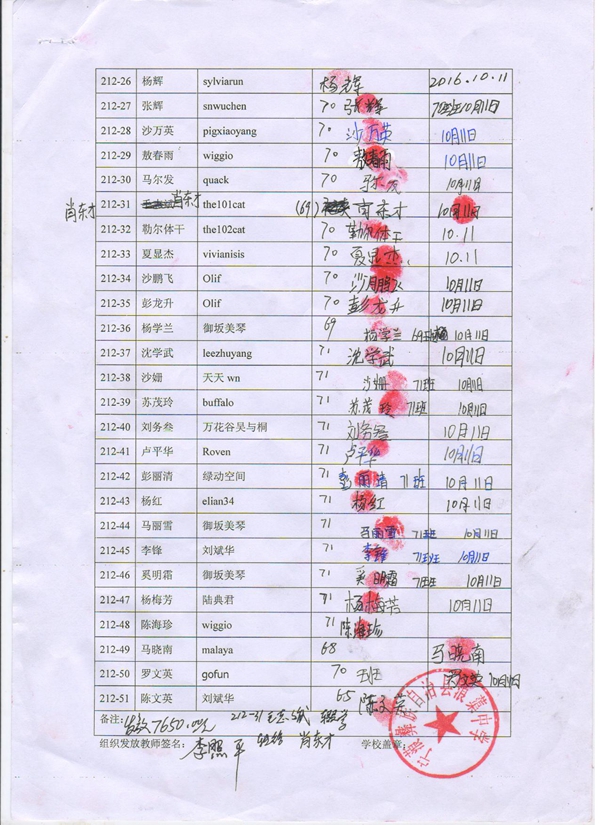 212-26 杨辉 sylviarun 杨辉 2016.10.11
212-27 张辉 snwuchen 70 张辉 70班10月11日
212-28 沙万英 pigxiaoyang 70 沙万英 10月11日
212-29 敖春雨 wiggio 70 敖春雨 10月11日
212-30 马尔发 quack 70 10月11日
肖东才 212-31 肖东才 the101cat (69) 肖东才 10月11日
212-32 勒尔体干 the102cat 70 勒尔体干 10.11
212-33 夏显杰 vivianisis 70 夏显杰 10.11
212-34 沙鹏飞 Olif 70 沙鹏飞 10月11日
212-35 彭龙升 Olif 70 彭龙升 10月11日
212-36 杨学兰 御坂美琴 69 杨学兰 69班 10月11日
212-37 沈学武 leezhuyang 71 沈学武 10月11日
212-38 沙姗 天天 wn 71 沙姗 71班 10月11日
212-39 苏茂玲 buffalo 71 苏茂玲 71班 10月11日
212-40 刘务叁 万花谷吴与桐 71 刘务叁 10月11日
212-41 卢平华 Roven 71 卢平华 10月11日
212-42 彭丽清 绿动空间 71 彭丽清 71班 10月11日
212-43 杨红 elian34 71 杨红 10月11日
212-44 马丽雪 御坂美琴 71 马丽雪 71班 10月11日
212-45 李锋 刘斌华 71 李锋 71班 10月11日
212-46 奚明霜 御坂美琴 71 奚明霜 71班 10月11日
212-47 杨梅芳 陆典君 71 杨梅芳 10月11日
212-48 陈海珍 wiggio 71 陈海珍
212-49 马晓南 malaya 68 马晓南
212-50 罗文英 gofun 70 班 罗文英 10月11日
212-51 陈文英 刘斌华 65 陈文英
备注: 发放7650.00元 212-31
组织发放教师签名: 李照平 肖东才 学校盖章:
宁蒗彝族自治县浪蕖中学